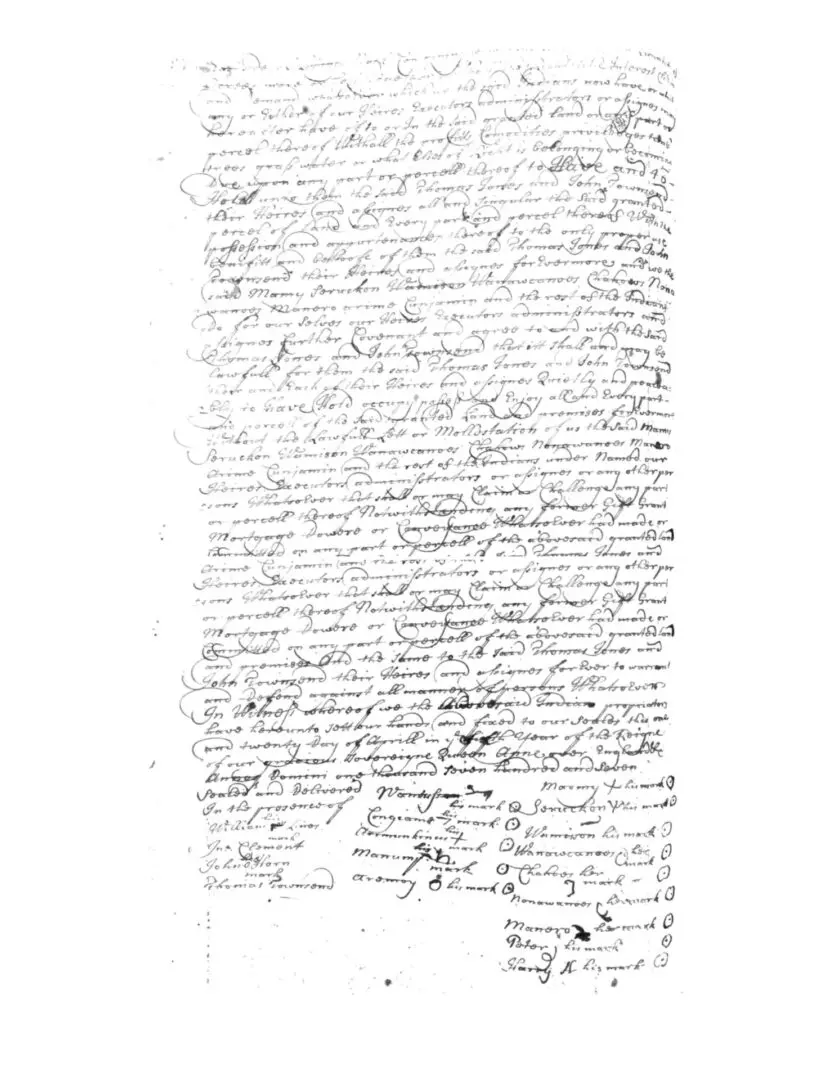 and Demand whatsoever which we the said Indians now have or
any or Either of our Heires Executors administrators or assignes may
hereafter have of to or In the said granted land or any part or
percel thereof Withall the profitts Comodities priviledges
trees grass water or what Elce is belonging or
upon any part or percell thereof to Have and to
Hold unto them the said Thomas Jones and John Townsend
their Heires and assignes all and singular the said granted
percel of Land and Every part and percel thereof With the
possession and appurtenances thereof to the only proper use
benifitt and behoofe of them the said Thomas Jones and John
Townsend their Heires and assignes for Evermore and we the
said Mamy Seruckon Wamison Wanawcanoes Chakoes Nona
wanoes Manero arime Cunjamin and the rest of the Indians
do for our selves our Heires Executors administrators and
assignes further Covenant and agree to and with the said
Thomas Jones and John Townsend that itt shall and may be
Lawfull for them the said Thomas Jones and John Townsend
their and Each of their Heires and assignes Quietly and peacea-
bly to Have Hold occupy posess and Enjoy all and Every part
and percel of the said granted Land and premises for Evermore
Without the Lawfull Lett or Mollestation of us the said Mamy
Seruckon Wamison Wanawcanoes Chakoes Nonawanoes Manero
arime Cunjamin and the rest of the Indians under Named our
Heires Executors administrators or assignes or any other per
sons Whatsoever that shall or may Claim or Challenge any part
or percell thereof Notwithstanding any former Gift Grant
Mortgage Dowere or Conveyance Whatsoever had made or
Committed on any part or percell of the abovesaid granted land
arime Cunjamin and the rest Thomas Jones and
Heires Executors administrators or assignes or any other per
sons Whatsoever that shall or may Claim or Challenge any part
or percell thereof Notwithstanding any former Gift Grant
Mortgage Dowere or Conveyance Whatsoever had made or
Committed on any part or percell of the abovesaid granted land
and premises and the same to the said Thomas Jones and
John Townsend their Heires and assignes for Ever to warrant
and Defend against all manner of persons Whatsoever
In Witness whereof we the abovesaid Indian propriators
have hereunto sett our hands and fixed to our seales this one
and twenty Day of Aprill in the fifth Year of the Reigne
of our gracious Sovereigne Queen Anne over England &c
Annoq Domini one thousand seven hundred and seven
Sealed and Delivered
In the presence of
William his Lines
mark
Jno Clement
John Horn
mark
Thomas Townsend
his mark
Congiame his mark
his mark
Manumy
mark
Aremoy his mark
Mamy his mark
Seruckon his mark
Wamison his mark
Wanawcanoes her mark
Chakoes her mark
Nonawanoes her mark
Manero her mark
Peter his mark
Harry his mark